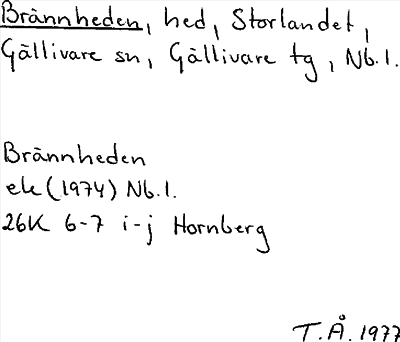 Brännheden, hed, Storlandet,
Gällivare sn, Gällivare tg, Nb.l.
Brännheden
ek (1974) Nb.l.
26K 6-7 i-j Hornberg
T.Å. 1977